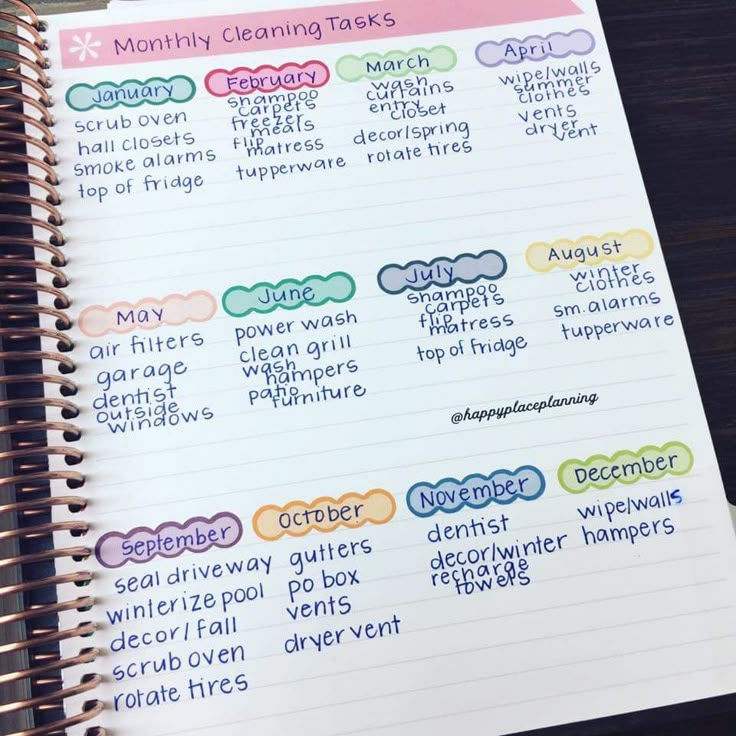 Monthly Cleaning Tasks
January
scrub oven
hall closets
smoke alarms
top of fridge
February
shampoo
carpets
freezer
meals
flip
matress
tupperware
March
wash
curtains
entry
closet
decor/spring
rotate tires
April
wipe/walls
summer
clothes
vents
dryer
vent
May
air filters
garage
dentist
outside
windows
June
power wash
clean grill
wash
hampers
patio
furniture
July
shampoo
carpets
flip
matress
top of fridge
August
winter
clothes
sm. alarms
tupperware
@happyplaceplanning
September
seal driveway
winterize pool
decor/fall
scrub oven
rotate tires
October
gutters
po box
vents
dryer vent
November
dentist
decor/winter
recharge
towers
December
wipe/walls
hampers